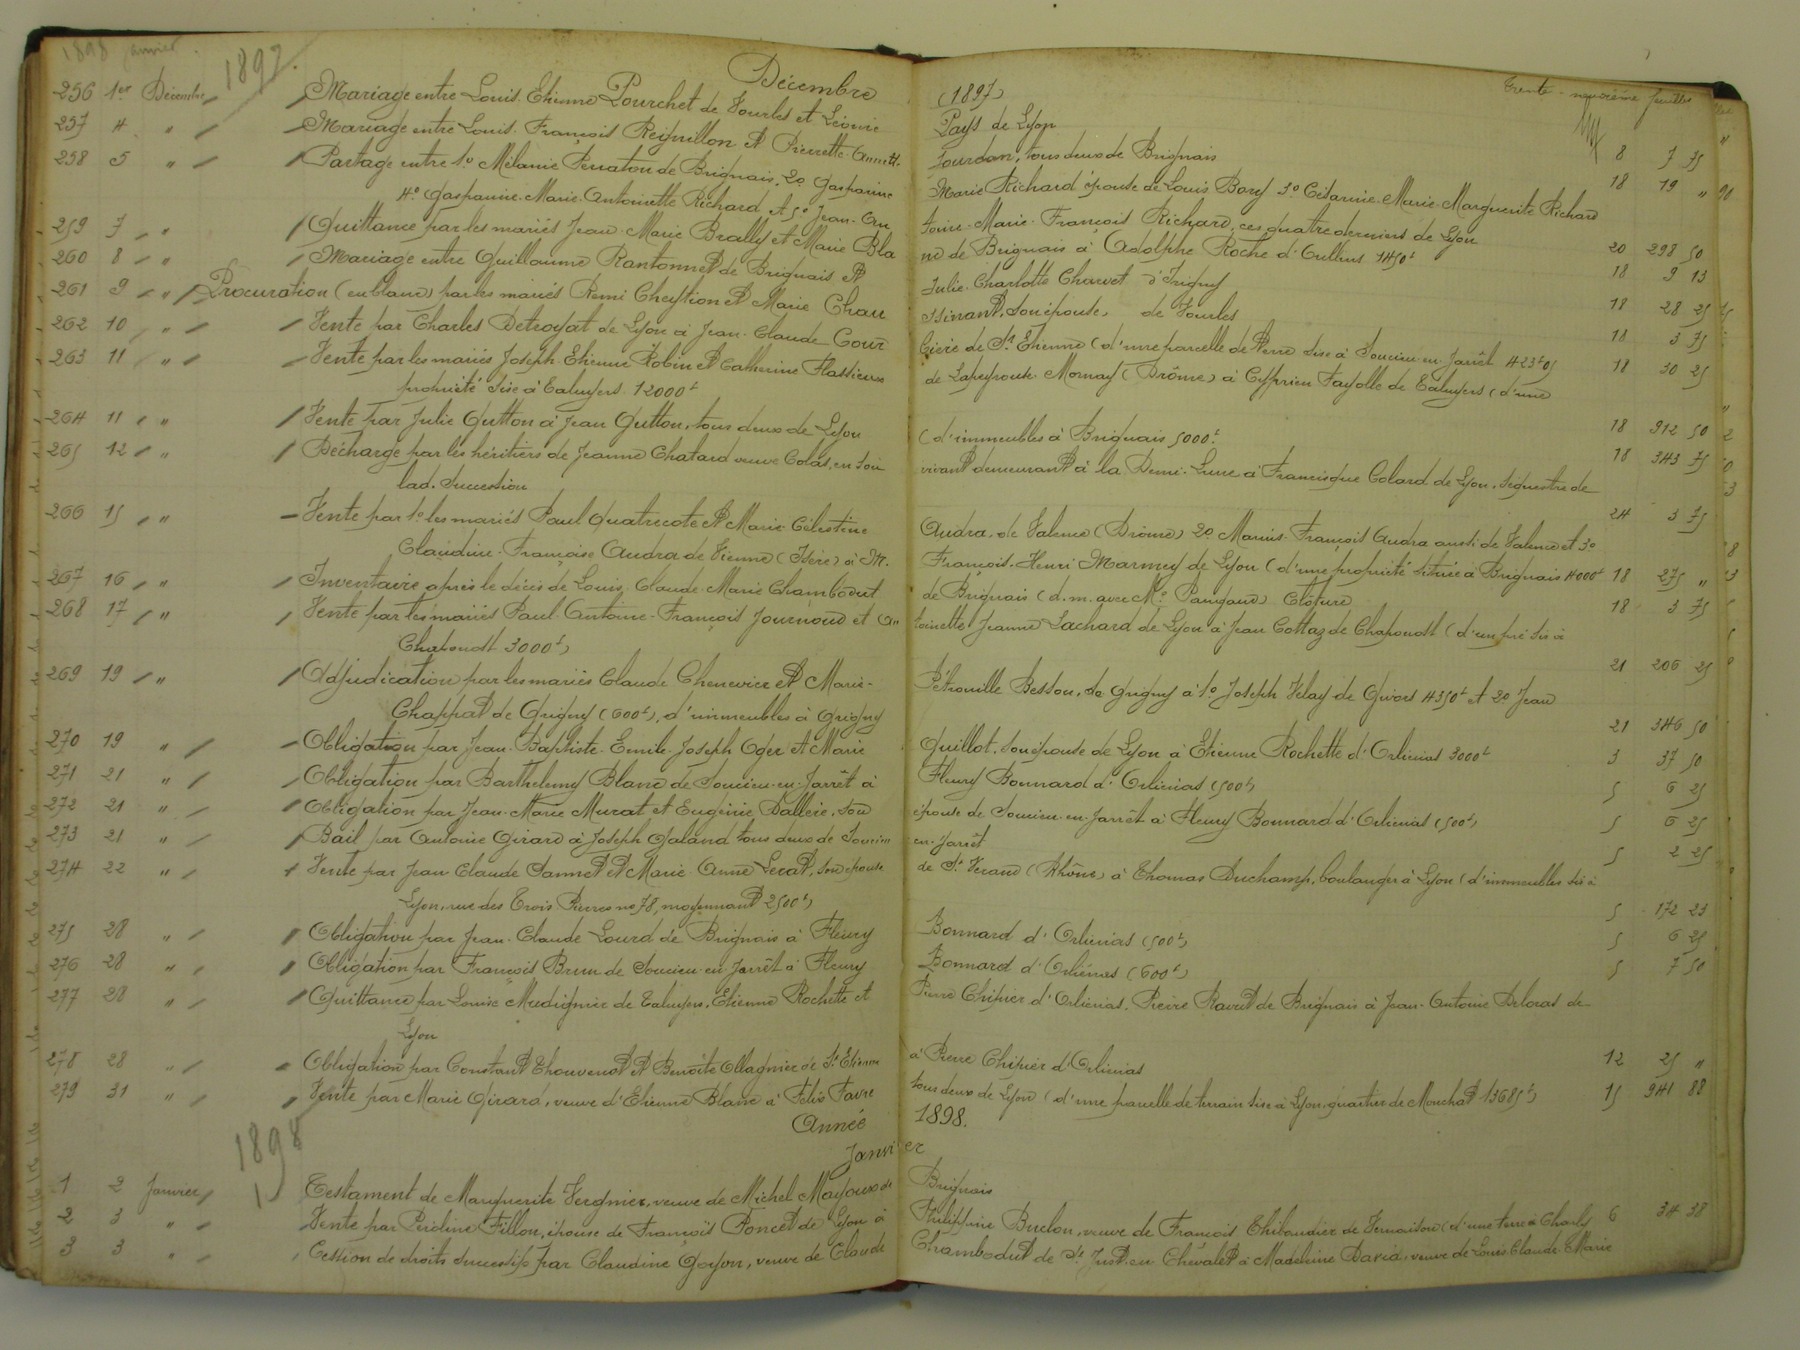 1898 janvier.
1897.
Décembre
(1897)
Trente-neuvième feuillet
256 1er Décembre Mariage entre Louis Etienne Pourchet de Vourles et Léonie
Pays de Lyon 8 7 75
257 4 " Mariage entre Louis François Reignillon et Pierrette Annette
Jourdan, tous deux de Brignais 18 19 "
258 5 " Partage entre 1o Mélanie Perraton de Brignais, 2o Gasparine
Marie Richard épouse de Louis Bory 3o Césarine Marie Marguerite Richard
4o Gasparine Marie Antoinette Richard et 5o Jean An
toine Marie François Richard, ces quatre derniers de Lyon 20 298 50
259 7 " Quittance par les mariés Jean Marie Brally et Marie Bla
nc de Brignais à Adolphe Roche d'Oullins 1450f 18 9 13
260 8 " Mariage entre Guillaume Rantonnet de Brignais et
Julie Charlotte Charvet d'Irigny 18 28 25
261 9 " Procuration (en blanc) par les mariés Remi Cheytion et Marie Chau
ssinant, son épouse, de Vourles 18 3 75
262 10 " Vente par Charles Detroyat de Lyon à Jean Claude Cour
bière de St Etienne (d'une parcelle de terre sise à Soucieu en Jarrêt 423f05 18 30 25
263 11 " Vente par les mariés Joseph Etienne Robin et Catherine Flassieux
de Lapeyrouse Mornay (Drôme) à Cyprien Fayolle de Taluyers (d'une
propriété sise à Taluyers 12000f 18 912 50
264 11 " Vente par Julie Gutton à Jean Gutton, tous deux de Lyon
(d'immeubles à Brignais 5000f. 18 343 75
265 12 " Décharge par les héritiers de Jeanne Chatard veuve Colas, en son
vivant demeurant à la Demi-Lune à Francisque Colard de Lyon, séquestre de
lad. succession 24 3 75
266 15 " Vente par 1o les mariés Paul Quatrecote et Marie Célestine
Audra, de Valence (Drôme) 2o Marius François Audra aussi de Valence et 3o
Claudine Françoise Audra de Vienne (Isère) à M.
François Henri Marmey de Lyon (d'une propriété située à Brignais 4000f 18 275 "
267 16 " Inventaire après le décès de Louis Claude Marie Chambodut
de Brignais (d.m. avec Me Paugaud) Clôture 18 3 75
268 17 " Vente par les mariés Paul Antoine François Journoud et An
toinette Jeanne Lachard de Lyon à Jean Cottaz de Chaponost (d'un pré sis à
Chaponost 3000f) 21 206 25
269 19 " Adjudication par les mariés Claude Chenevier et Marie
Pétronille Besson, de Grigny à 1o Joseph Velay de Givors 4350f et 2o Jean
Chappat de Grigny (600f), d'immeubles à Grigny 21 346 50
270 19 " Obligation par Jean Baptiste Emile Joseph Oger et Marie
Guillot, son épouse de Lyon à Etienne Rochette d'Orliénas 3000f 3 37 50
271 21 " Obligation par Barthelemy Blanc de Soucieu-en-Jarrêt à
Fleury Bonnard d'Orliénas (500f) 5 6 25
272 21 " Obligation par Jean Marie Murat et Eugénie Dallière, son
épouse de Soucieu-en-Jarrêt à Fleury Bonnard d'Orliénas (500f) 5 6 25
273 21 " Bail par Antoine Girard à Joseph Galand tous deux de Soucieu
en-Jarrêt 5 2 25
274 22 " Vente par Jean Claude Sannet et Marie Anne Lerat, son épouse
de St Verand (Rhône) à Thomas Duchamp, boulanger à Lyon (d'immeubles sis à
Lyon, rue des Trois Pierres no 78, moyennant 2500f) 5 172 23
275 28 " Obligation par Jean Claude Lourd de Brignais à Fleury
Bonnard d'Orliénas (500f) 5 6 25
276 28 " Obligation par François Brun de Soucieu en Jarrêt à Fleury
Bonnard d'Orliénas (600f) 5 7 50
277 28 " Quittance par Louise Mudignier de Taluyers, Etienne Rochette et
Pierre Chipier d'Orliénas, Pierre Ravet de Brignais à Jean Antoine Deloras de
Lyon
278 28 " Obligation par Constant Thouvenot et Benoîte Ollagnier de St Etienne
à Pierre Chipier d'Orliénas 12 25 "
279 31 " Vente par Marie Girard, veuve d'Etienne Blanc à Félix Favre
tous deux de Lyon (d'une parcelle de terrain sise à Lyon, quartier de Monchat 13685f) 15 941 88
Année 1898.
1898
Janvier
1 2 Janvier Testament de Marguerite Vergnier, veuve de Michel Mayoux de
Brignais
2 3 " Vente par Perdine Fillon, épouse de François Poncet de Lyon à
Philippine Buclon, veuve de François Thibaudier de Vernaison (d'une terre à Charly 6 34 38
3 3 " Cession de droits successifs par Claudine Goyon, veuve de Claude
Chambodut de St Just en Chevalet à Madeleine David, veuve de Louis Claude Marie